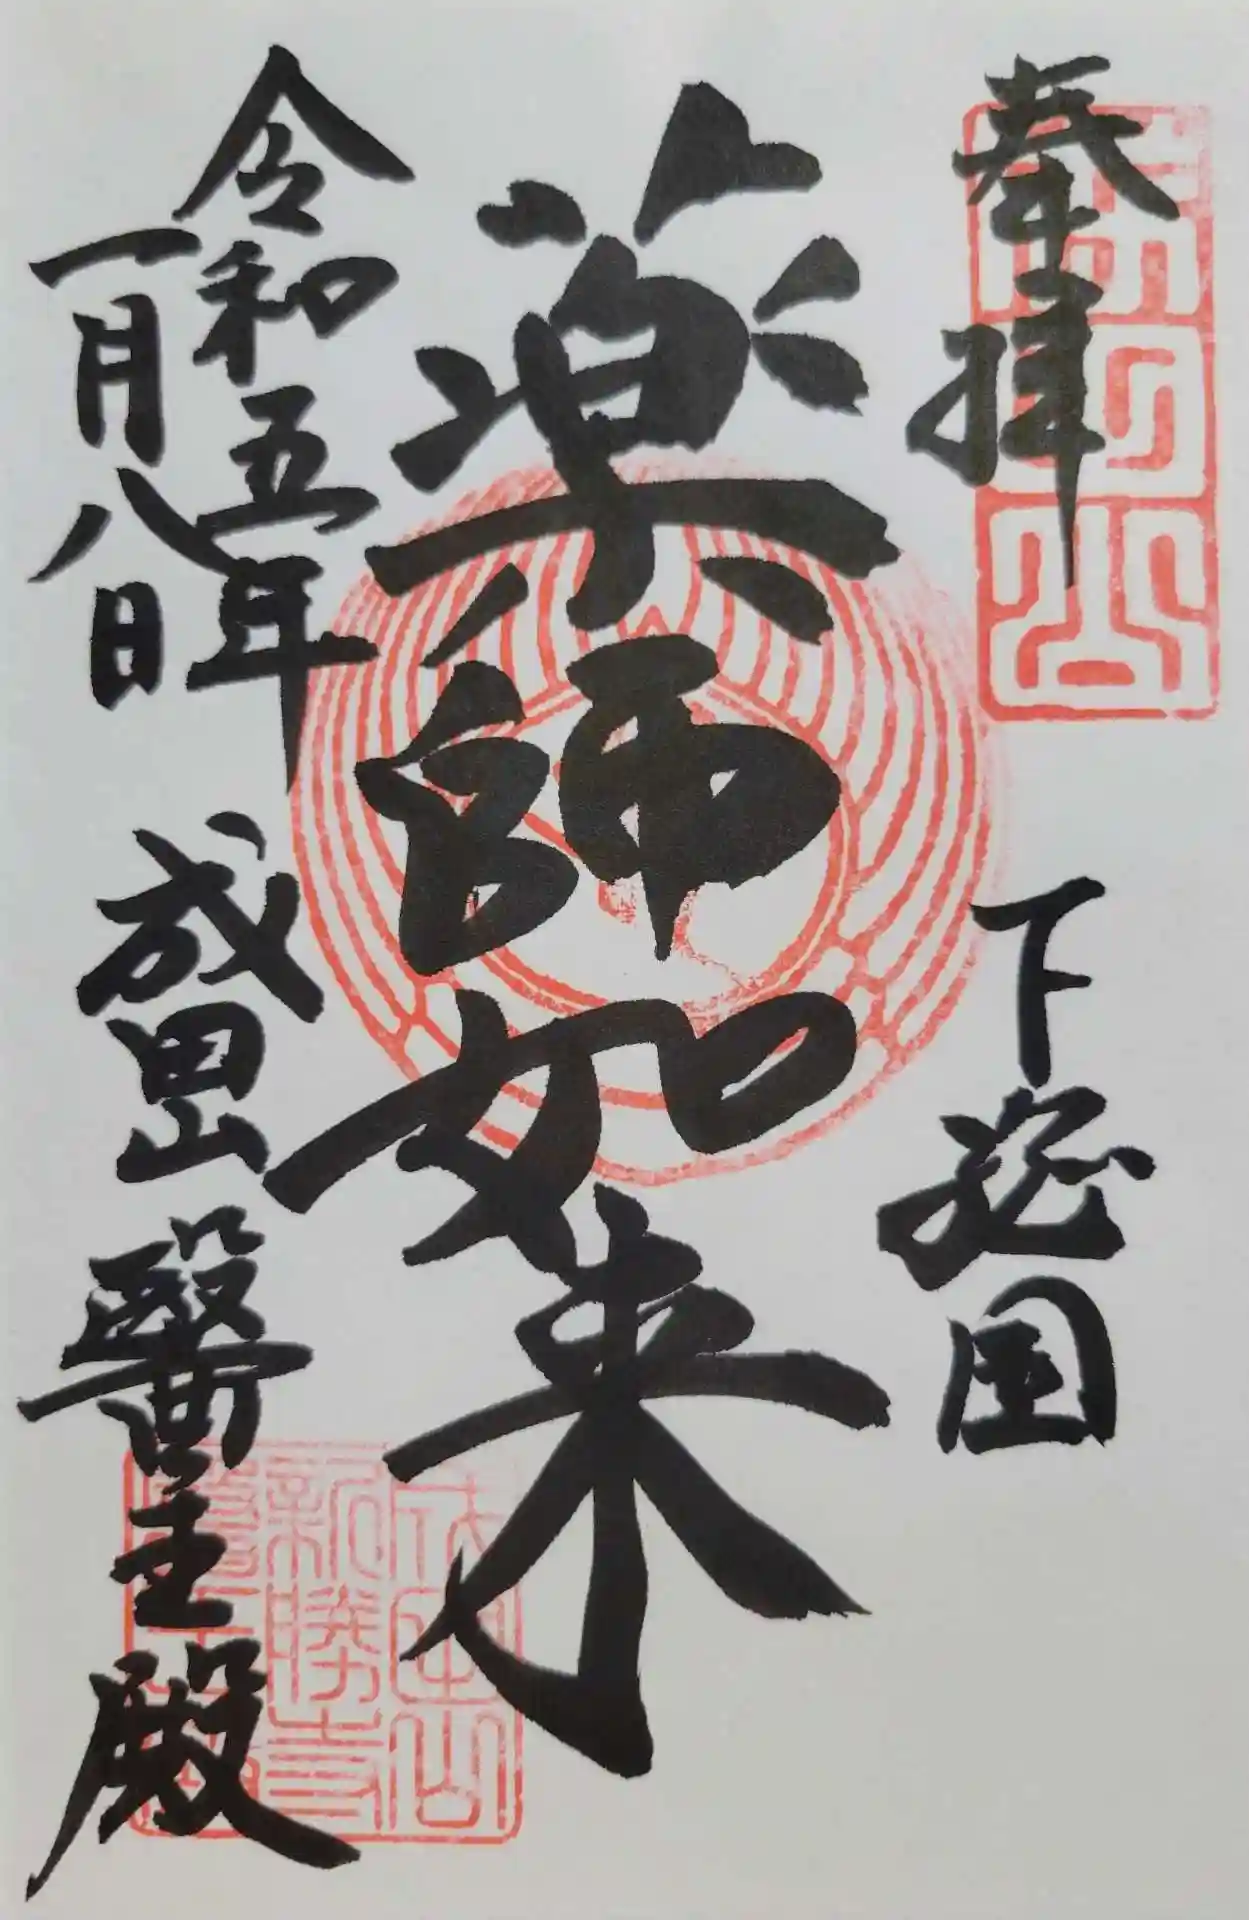 奉拝
下総国
薬師如来
令和五年
一月八日
成田山 醫王殿
成田山
新勝寺
醫王殿